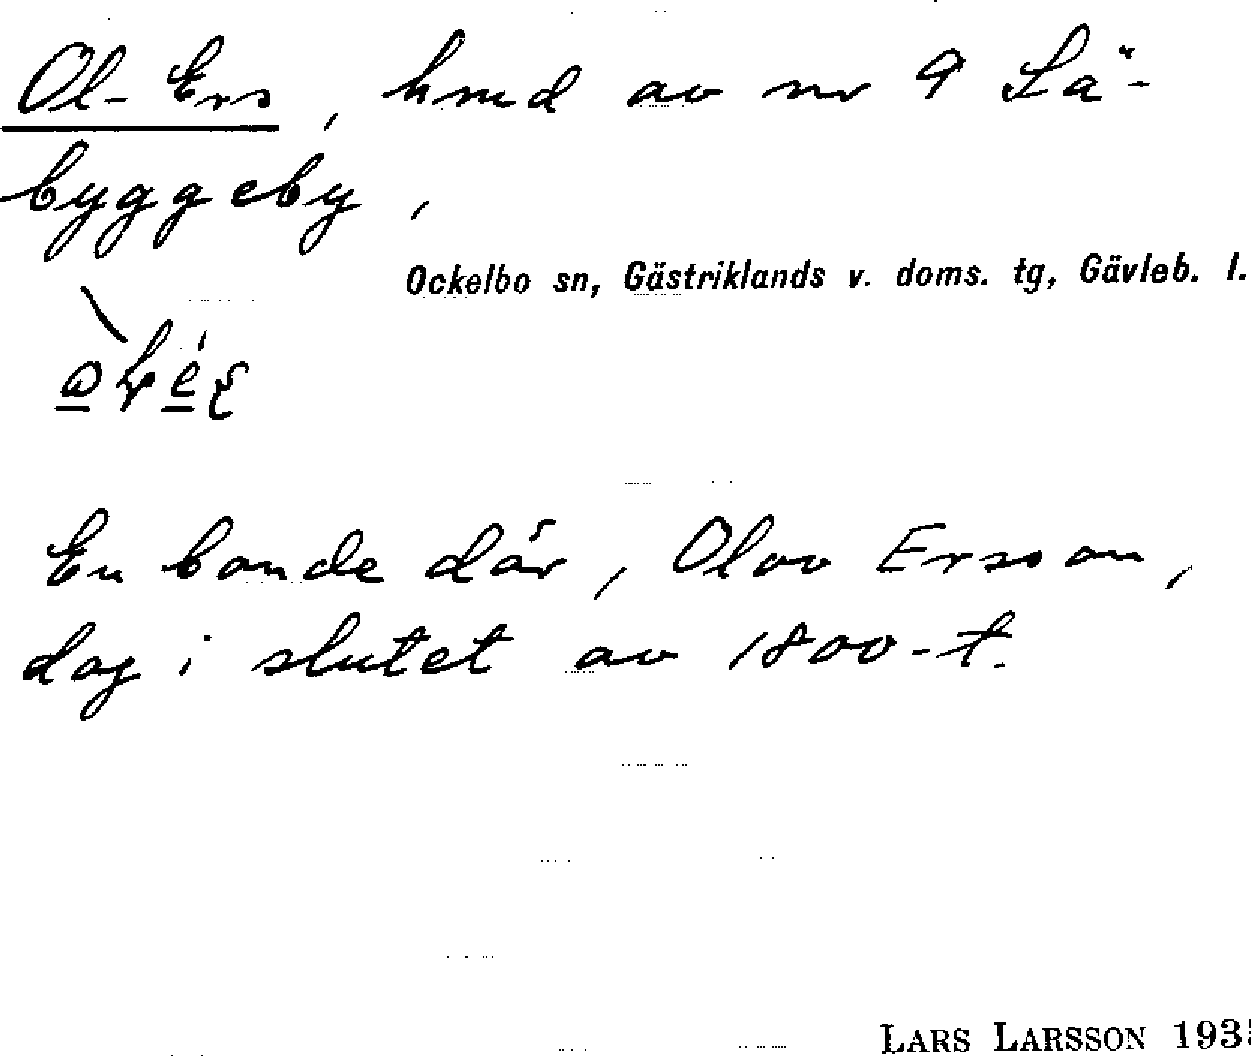 Ol-Ers, hmd av nr 9 Lä-
byggeby,
Ockelbo sn, Gästriklands v. doms. tg, Gävleb. l.
En bonde där, Olov Ersson,
dog i slutet av 1800-t.
LARS LARSSON 193